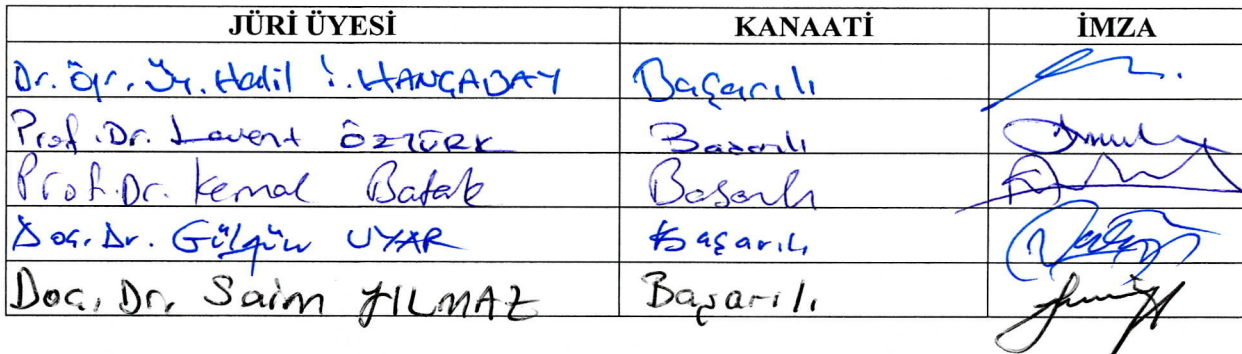 JÜRİ ÜYESİ KANAATİ İMZA
Dr. Öğr. Üy. Halil İ. HANÇABAY Başarılı
Prof. Dr. Levent ÖZTÜRK Başarılı
Prof. Dr. Kemal Batak Başarılı
Doç. Dr. Gülgün UYAR Başarılı
Doç. Dr. Saim YILMAZ Başarılı